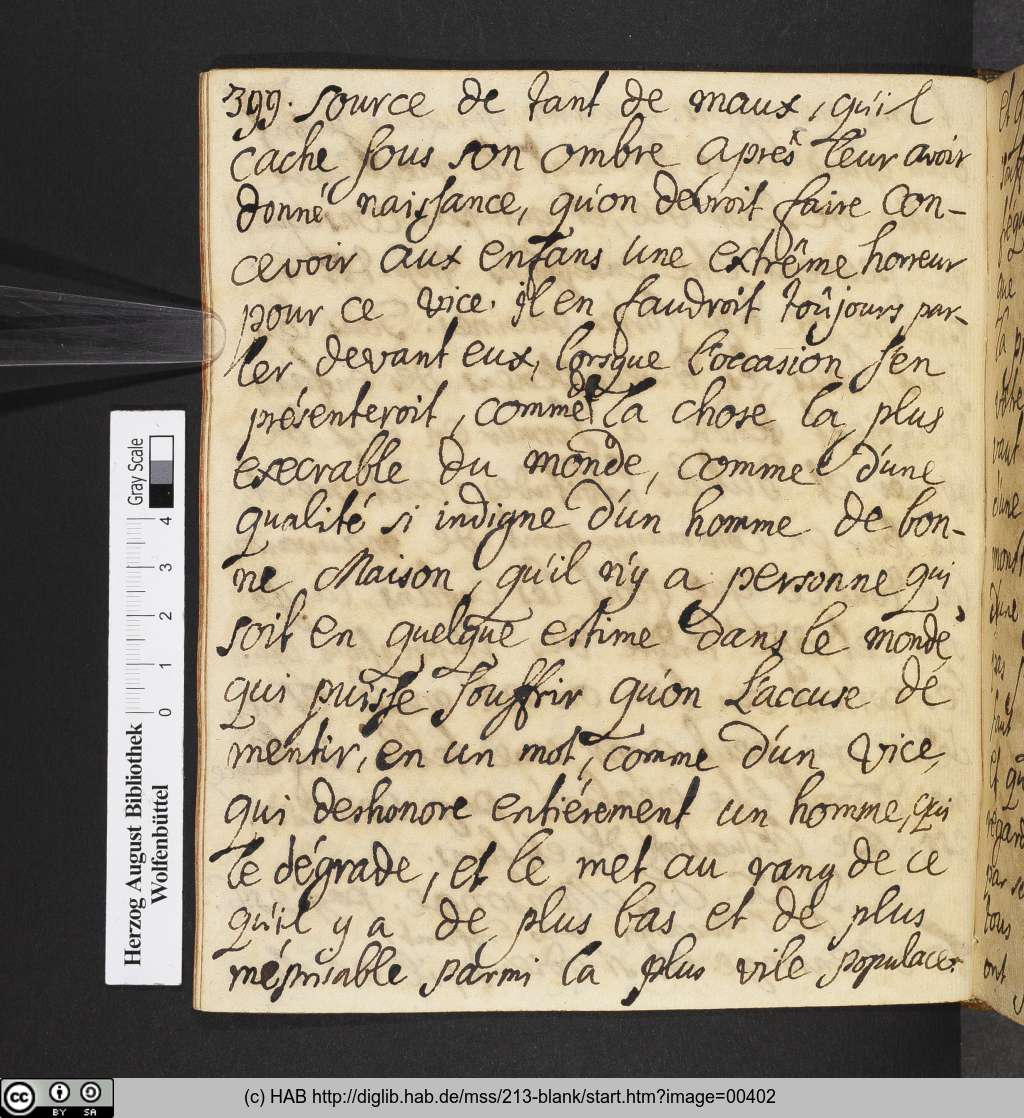 399. source de tant de maux, qu'il
cache sous son ombre après leur avoir
donné naissance, qu'on devroit faire con-
cevoir aux enfans une extrême horreur
pour ce vice. il en faudroit toûjours par-
ler devant eux, lorsque l'occasion s'en
présenteroit, comme de la chose la plus
execrable du monde, comme d'une
qualité si indigne d'un homme de bon-
ne Maison, qu'il n'y a personne qui
soit en quelque estime dans le monde,
qui puisse souffrir qu'on l'accuse de
mentir, en un mot, comme d'un vice,
qui deshonore entiérement un homme, qui
le dégrade, et le met au rang de ce
qu'il y a de plus bas et de plus
méprisable parmi la plus vile populace.
Herzog August Bibliothek
Wolfenbüttel
0 1 2 3 4
Gray Scale
(c) HAB http://diglib.hab.de/mss/213-blank/start.htm?image=00402
cc BY SA